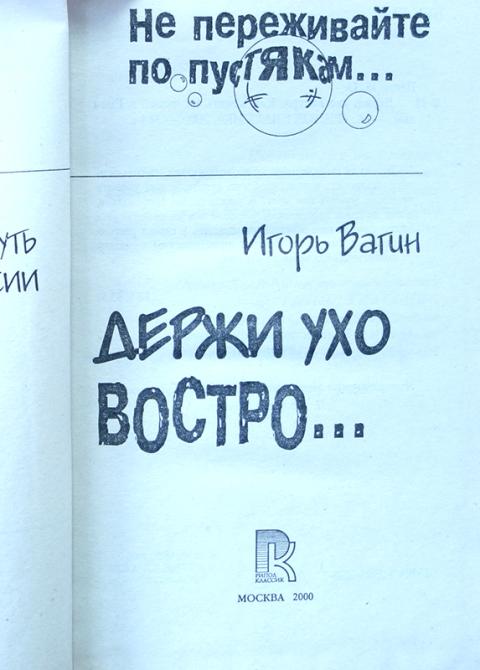 Не переживайте
по пустякам...
уть
сии
Игорь Вагин
ДЕРЖИ УХО
ВОСТРО...
РИПОЛ
КЛАССИК
МОСКВА 2000